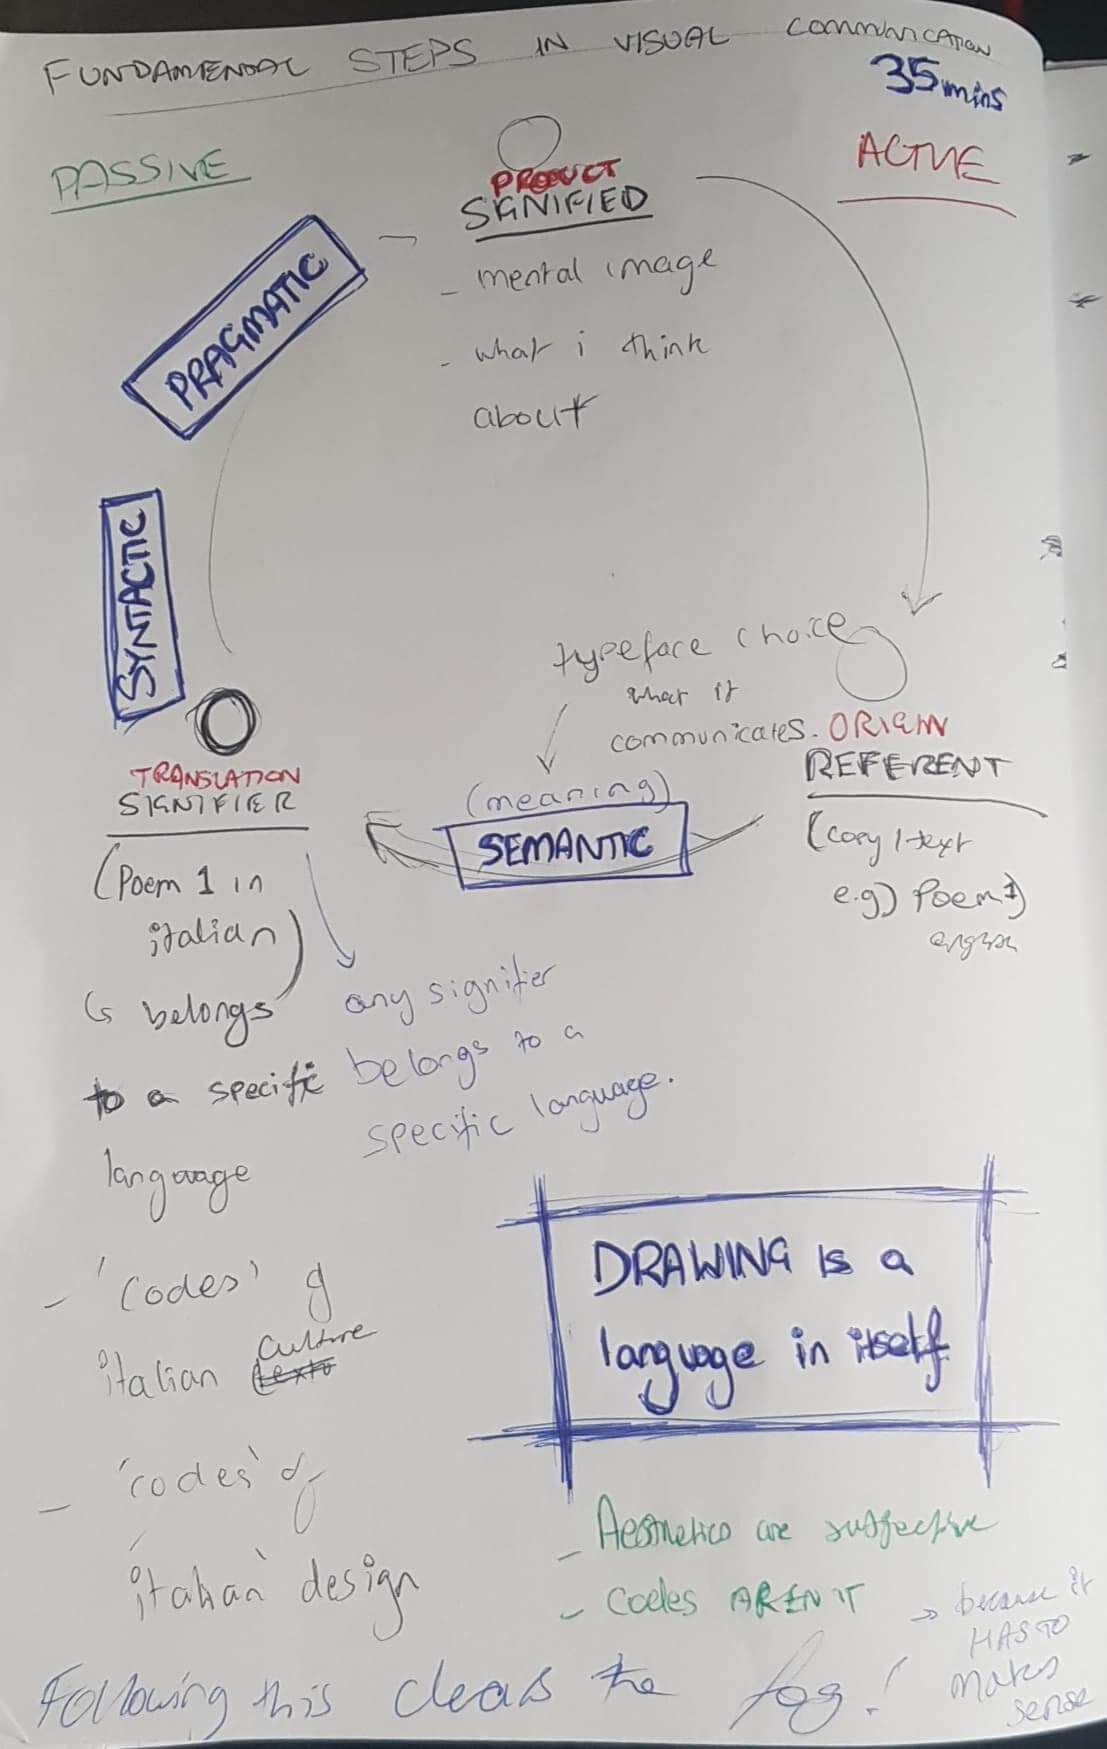 FUNDAMENDAL STEPS IN VISUAL COMMUNICATION
35 mins
PASSIVE
ACTIVE
PRODUCT
SIGNIFIED
- mental image
- what i think
about
PRAGMATIC
SYNTACTIC
typeface choice
what it
communicates.
(meaning)
SEMANTIC
ORIGIN
REFERENT
(copy/text
e.g) Poem 1)
TRANSLATION
SIGNIFIER
(Poem 1 in
italian)
belongs
to a specific
language
any signifier
belongs to a
specific language.
- 'codes' of
italian culture
- 'codes' of
italian design
DRAWING is a
language in itself
- Aesthetics are subjective
- Codes AREN'T
→ because it
HAS TO
makes
sense
Following this clears the fog!